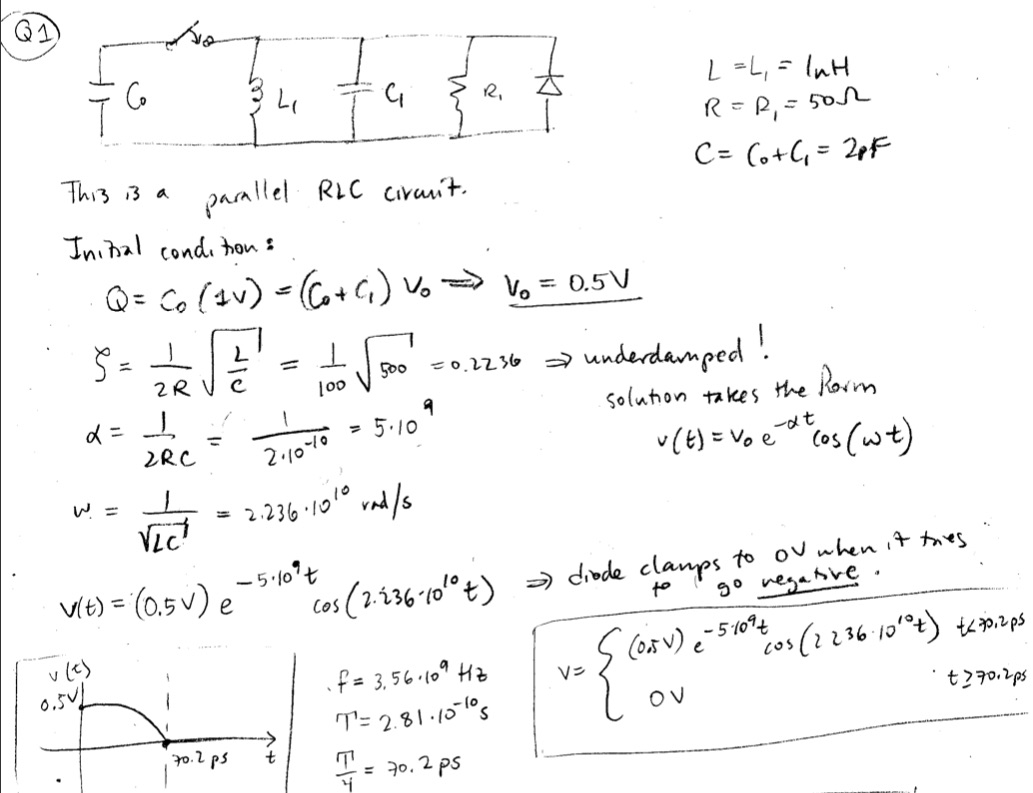 Q1
C₀ L₁ C₁ R₁
L = L₁ = 1nH
R = R₁ = 50Ω
C = C₀+C₁ = 2pF
This is a parallel RLC circuit.
Initial condition:
Q = C₀ (1V) = (C₀+C₁) V₀ ⟹ V₀ = 0.5V
ζ = 1/(2R) √(L/C) = 1/100 √500 = 0.2236 ⇒ underdamped!
solution takes the form
v(t) = V₀ e^(-αt) cos(ωt)
α = 1/(2RC) = 1/(2·10^-10) = 5·10^9
ω = 1/√(LC) = 2.236·10^10 rad/s
v(t) = (0.5V) e^(-5·10^9 t) cos(2.236·10^10 t) ⇒ diode clamps to 0V when it tries
to go negative.
V = { (0.5V) e^(-5·10^9 t) cos(2.236·10^10 t) t<70.2ps
0V t≥70.2ps
v(t)
0.5V
70.2 ps t
f = 3.56·10^9 Hz
T = 2.81·10^-10 s
T/4 = 70.2 ps